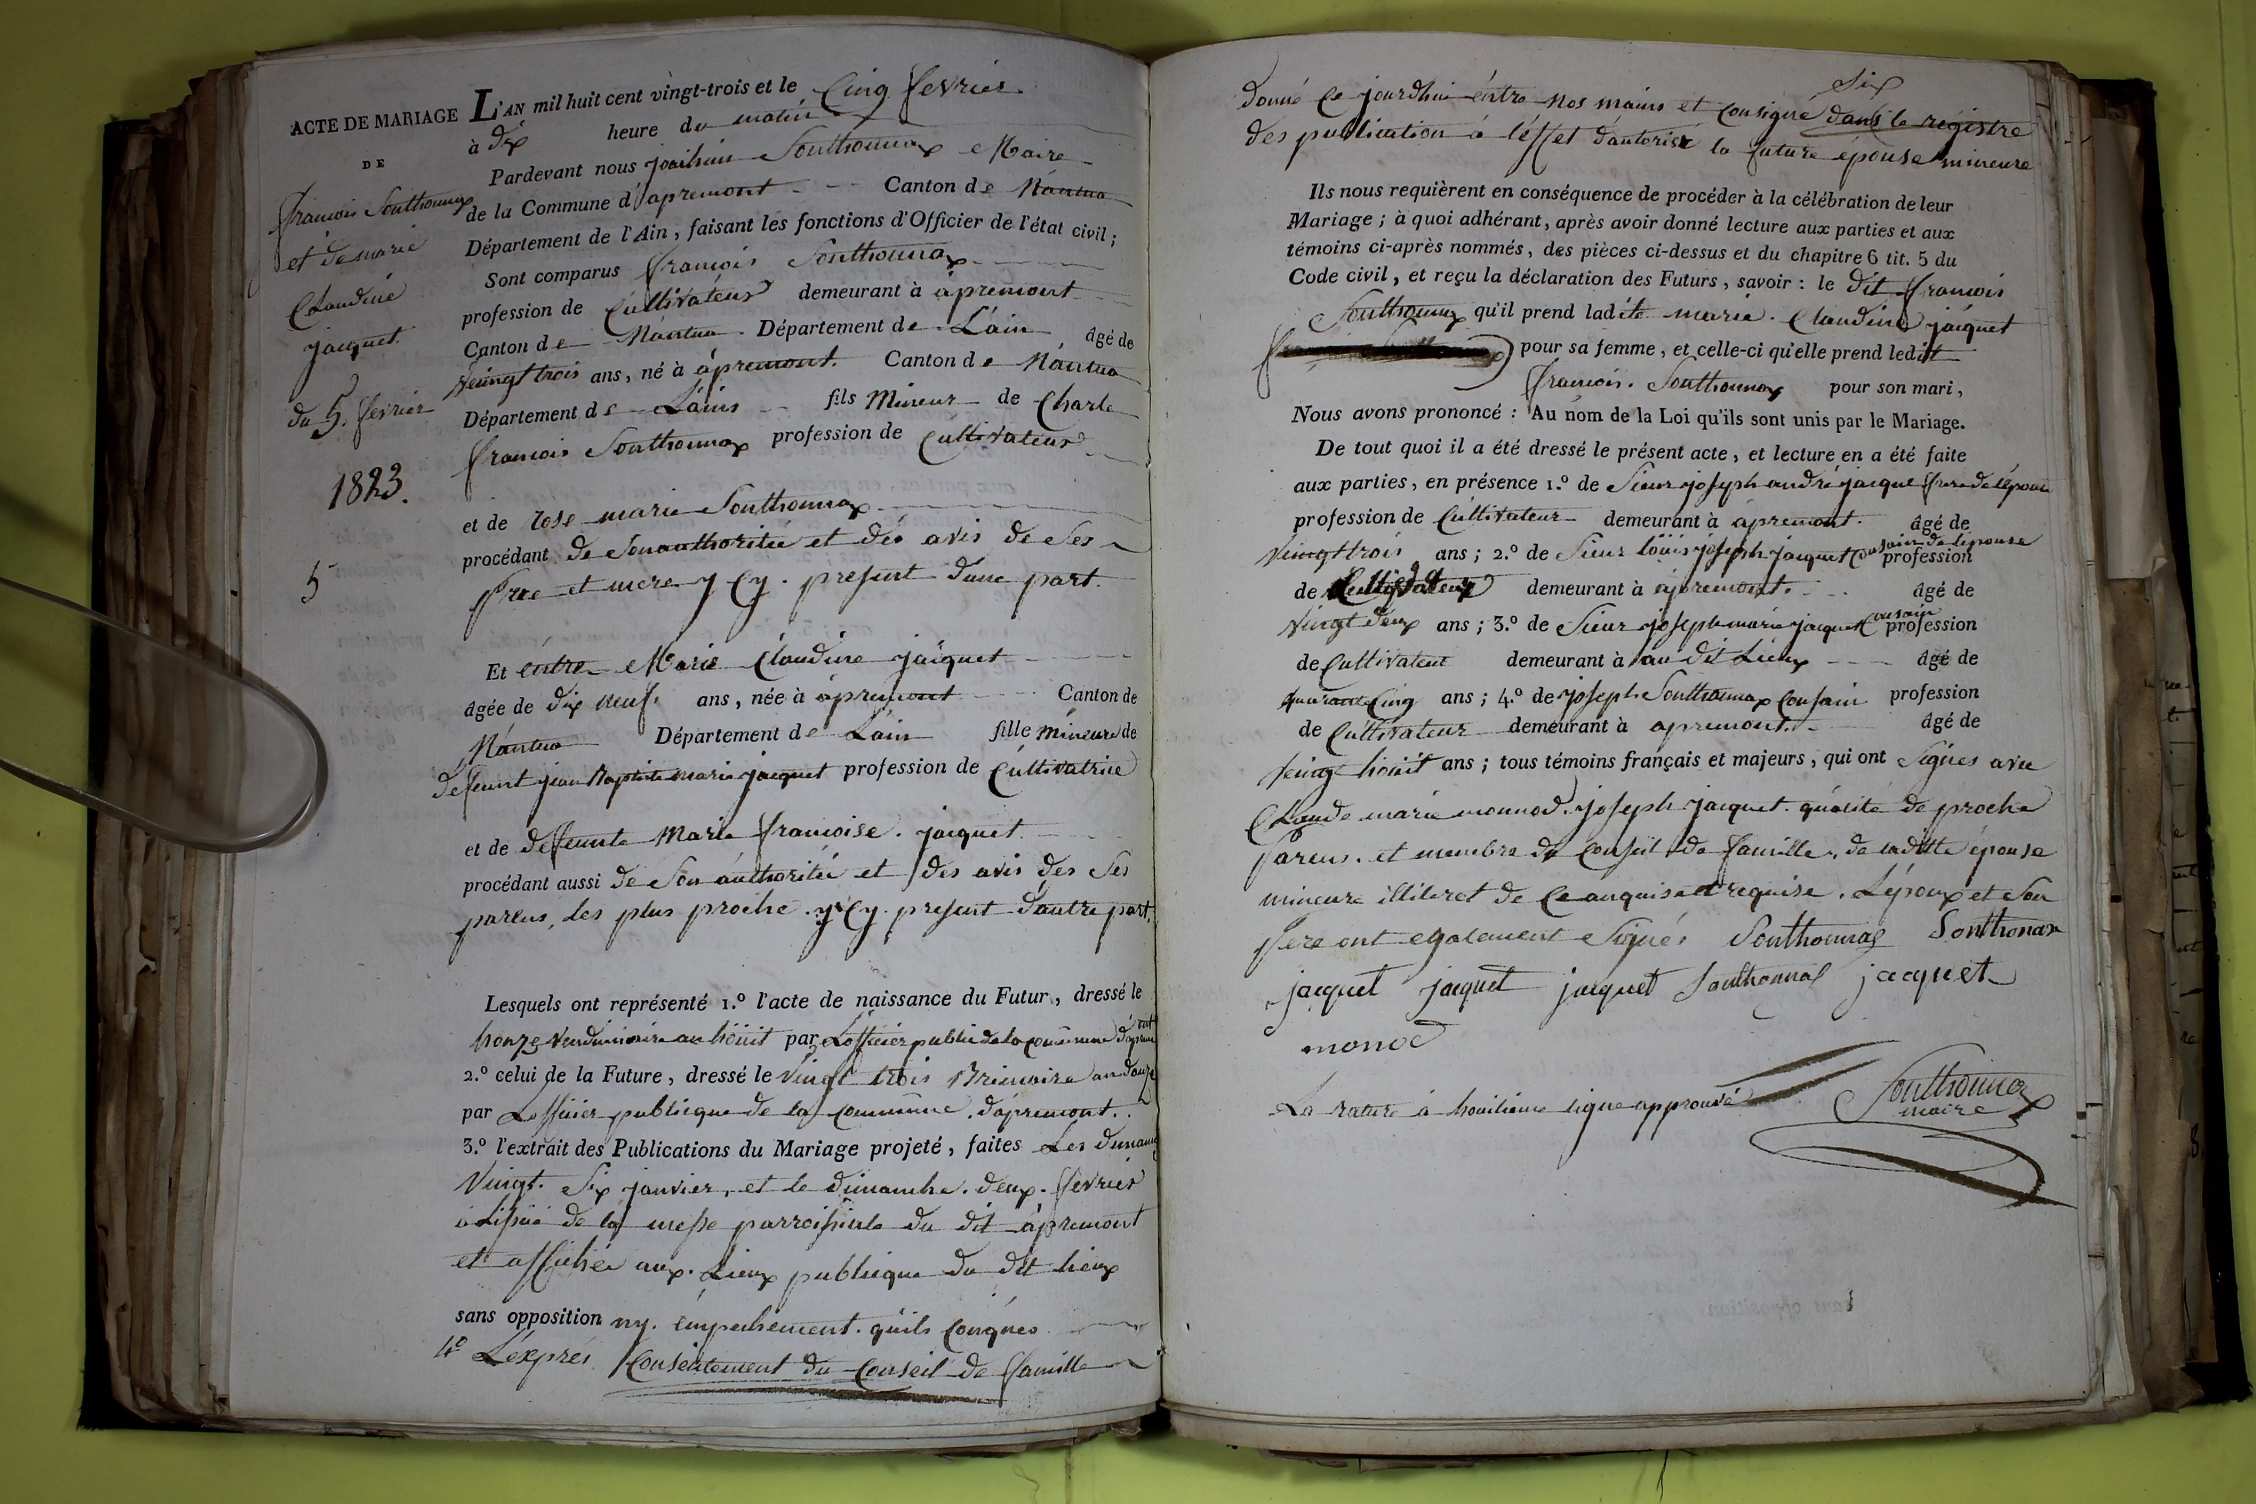 ACTE DE MARIAGE
DE
françois Sonthonnax
et de marie
Claudine
jacquet
du 5. fevrier
1823.
5
L'AN mil huit cent vingt-trois et le Cinq fevrier
à dix heure du matin
Pardevant nous joachim Sonthonnax Maire
de la Commune d'apremont Canton de Nantua
Département de l'Ain, faisant les fonctions d'Officier de l'état civil;
Sont comparus françois Sonthonnax
profession de Cultivateur demeurant à àpremont
Canton de Nantua Département de L'ain âgé de
veingt trois ans, né à àpremont. Canton de Nantua
Département de L'ains fils Mineur de Charle
françois Sonthonnax profession de Cultivateur
et de rose marie Sonthonnax
procédant de Son authoritée et dés avis de Ses
Pere et mere y Cy. present dune part.
Et éntre Marie Claudine jacquet
âgée de dix neuf. ans, née à àpremont Canton de
Nantua Département de L'ain fille mineure de
deffeunt jean Baptiste marie jacquet profession de Cultivatrice
et de deffeunte Marie françoise. jacquet
procédant aussi de Son áuthoritée et des avis des Ses
parens, les plus proche. y Cy. present d'autre part.
Lesquels ont représenté 1.º l'acte de naissance du Futur, dressé le
honze vendimiaire an hüiit par Lofficier public de la commune d'apremont
2.º celui de la Future, dressé le Vingt trois Brimaire an douze
par Lofficier publicque de la commune. d'apremont.
3.º l'extrait des Publications du Mariage projeté, faites Les dimanche
Vingt. Six janvier, et le dimanche. deux. fevrier
à Lissüe de la messe parroissiale du dit àpremont
et affichée aux. Lieux publicque du dit lieux
sans opposition ny. émpechement. quils
4º L'exprés Consentement du Conseil de famille
donné Ce jourdhui éntre nos mains et Consigné Six dans le régistre
des publication à l'éffet d'autorisér la future épouse mineure
Ils nous requièrent en conséquence de procéder à la célébration de leur
Mariage; à quoi adhérant, après avoir donné lecture aux parties et aux
témoins ci-après nommés, des pièces ci-dessus et du chapitre 6 tit. 5 du
Code civil, et reçu la déclaration des Futurs, savoir: le dit françois
Sonthonnax qu'il prend ladite marie. Claudine jacquet
pour sa femme, et celle-ci qu'elle prend ledit
françois. Sonthonnax pour son mari,
Nous avons prononcé: Au nom de la Loi qu'ils sont unis par le Mariage.
De tout quoi il a été dressé le présent acte, et lecture en a été faite
aux parties, en présence 1.º de Sieur joseph andré jacque frere de lépouse
profession de Cultivateur demeurant à àpremont. âgé de
Vingt trois ans; 2.º de Sieur loüis joseph jacquet Cousain de lépouse profession
de Cultivateur demeurant à apremont. âgé de
Vingt deux ans; 3.º de Sieur joseph marie jacquet Cousain profession
de Cultivateur demeurant à au dit Lieux âgé de
quarante Cinq ans; 4.º de joseph Sonthonnax Consain profession
de Cultivateur demeurant à apremont. âgé de
veingt hoüit ans; tous témoins français et majeurs, qui ont Signés avec
Claude marie monnod. joseph jacquet. quálité de proche
Parens. et membre du Conseil de famille. de ladite épouse
mineure illiteret de Ce anquise et requise. L'époux et Son
Pere ont également Signés Sonthonnax Sonthonax
jacquet jacquet jacquet Sonthonnax jacquet
monod
La rature à houitieme ligne approuvé
Sonthonnax
maire